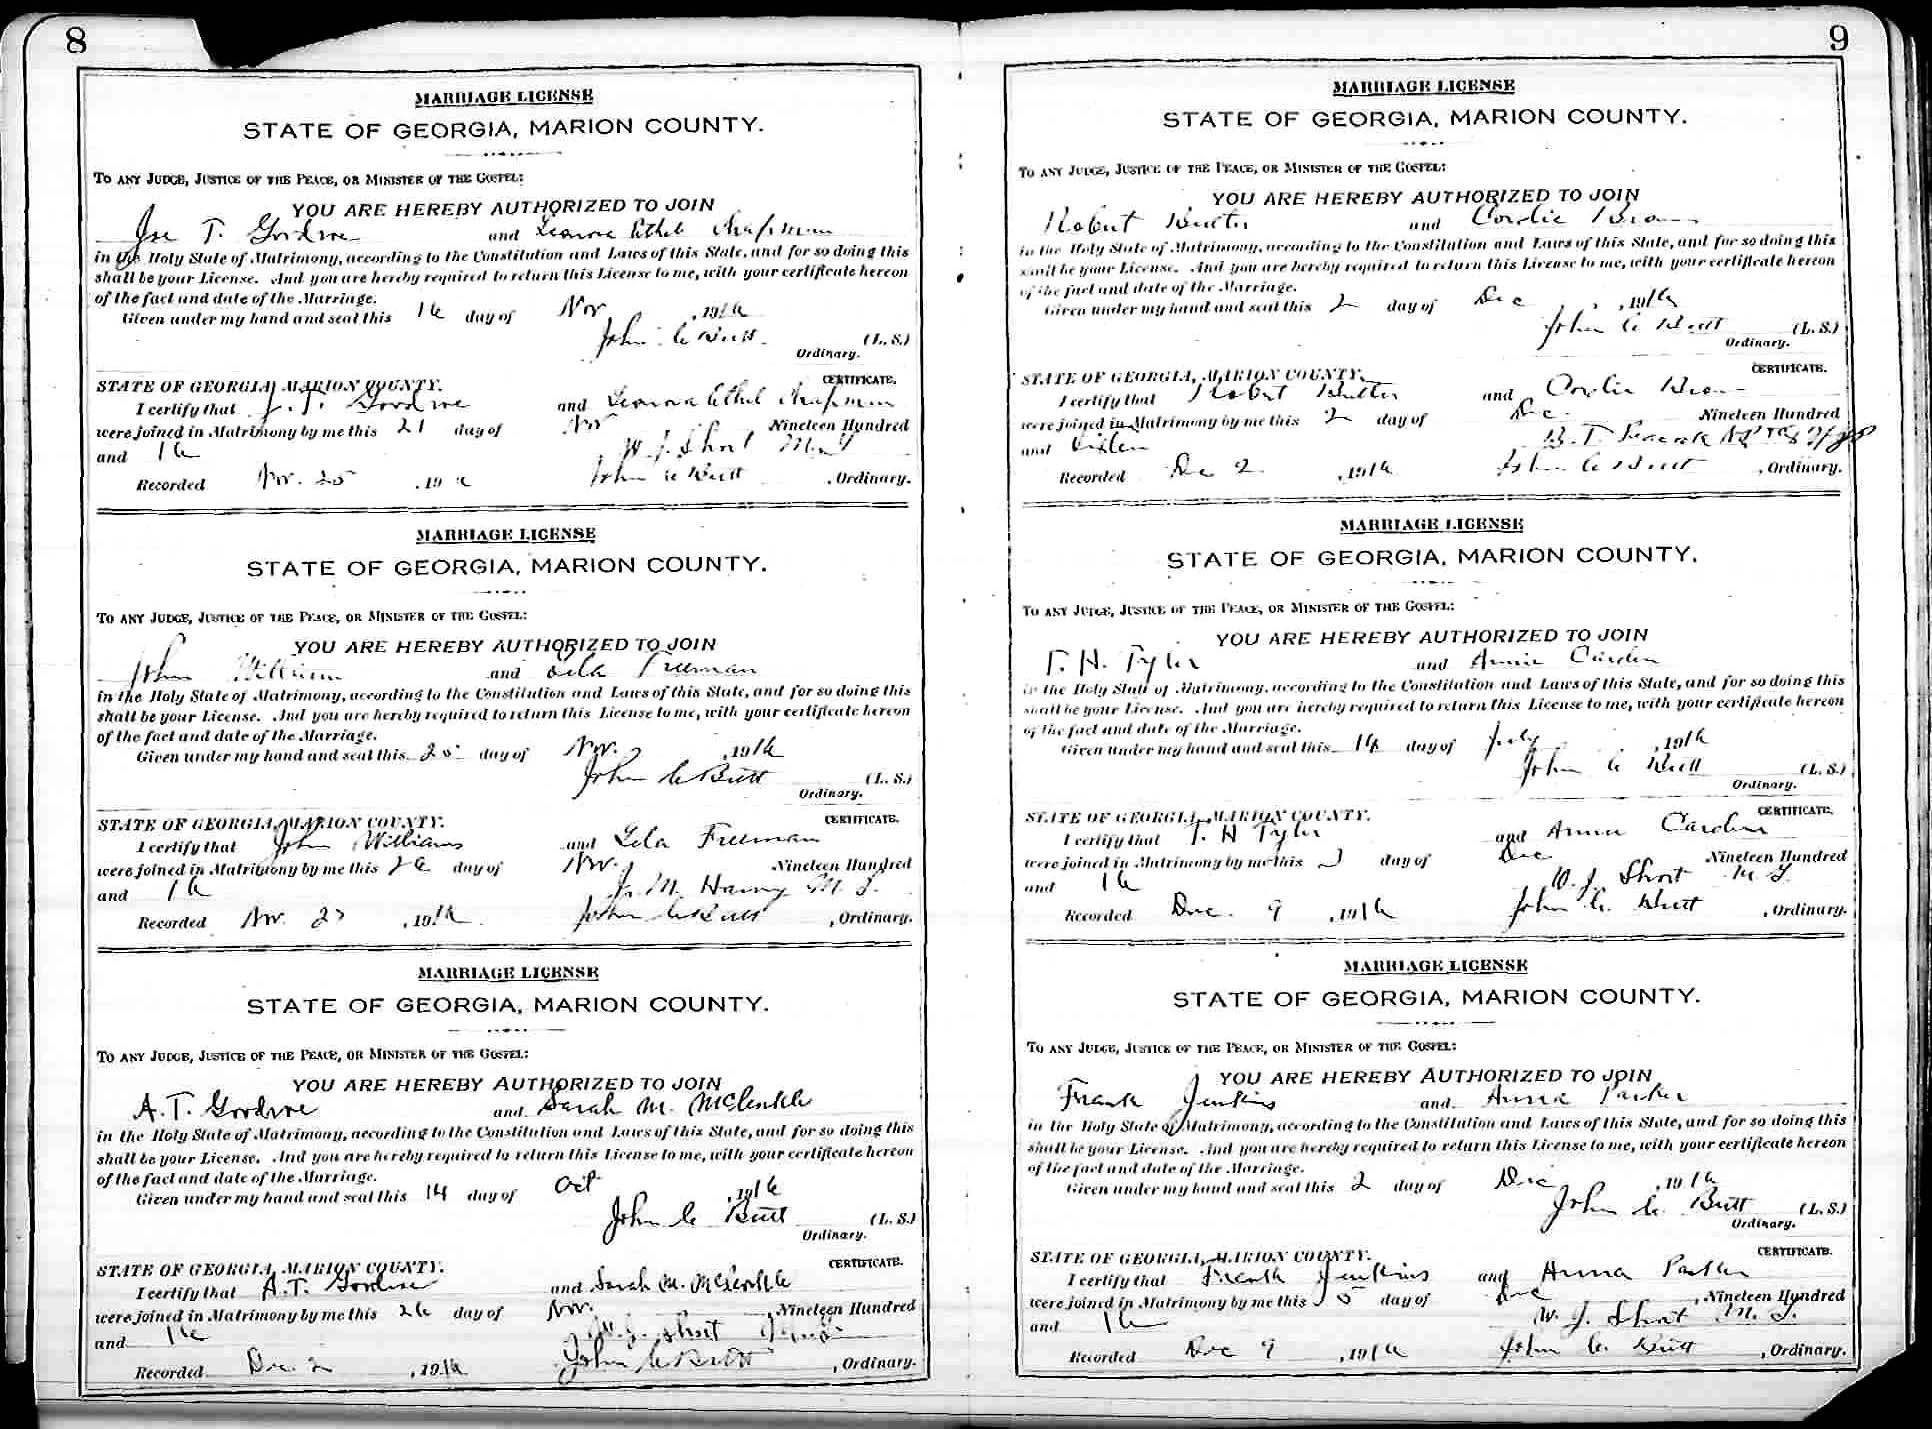 8
MARRIAGE LICENSE
STATE OF GEORGIA, MARION COUNTY.
TO ANY JUDGE, JUSTICE OF THE PEACE, OR MINISTER OF THE GOSPEL:
YOU ARE HEREBY AUTHORIZED TO JOIN
T. and Ethel Chapman
in the Holy State of Matrimony, according to the Constitution and Laws of this State, and for so doing this
shall be your License. And you are hereby required to return this License to me, with your certificate hereon
of the fact and date of the Marriage.
Given under my hand and seal this 16 day of Nov , 1916
John C Butt (L. S.)
Ordinary.
STATE OF GEORGIA, MARION COUNTY. CERTIFICATE.
I certify that J. T. and Ethel Chapman
were joined in Matrimony by me this 21 day of Nov Nineteen Hundred
and 16 W. J. Short M. G
Recorded Nov. 25 , 1916 John C Butt , Ordinary.
MARRIAGE LICENSE
STATE OF GEORGIA, MARION COUNTY.
TO ANY JUDGE, JUSTICE OF THE PEACE, OR MINISTER OF THE GOSPEL:
YOU ARE HEREBY AUTHORIZED TO JOIN
John William and Lela Freeman
in the Holy State of Matrimony, according to the Constitution and Laws of this State, and for so doing this
shall be your License. And you are hereby required to return this License to me, with your certificate hereon
of the fact and date of the Marriage.
Given under my hand and seal this 25 day of Nov. , 1916
John C Butt (L. S.)
Ordinary.
STATE OF GEORGIA, MARION COUNTY. CERTIFICATE.
I certify that John Williams and Lela Freeman
were joined in Matrimony by me this 26 day of Nov. Nineteen Hundred
and 16 J. M. M. G.
Recorded Nov. 27 , 1916 John C Butt , Ordinary.
MARRIAGE LICENSE
STATE OF GEORGIA, MARION COUNTY.
TO ANY JUDGE, JUSTICE OF THE PEACE, OR MINISTER OF THE GOSPEL:
YOU ARE HEREBY AUTHORIZED TO JOIN
A. T. and Sarah M.
in the Holy State of Matrimony, according to the Constitution and Laws of this State, and for so doing this
shall be your License. And you are hereby required to return this License to me, with your certificate hereon
of the fact and date of the Marriage.
Given under my hand and seal this 14 day of Oct , 1916
John C Butt (L. S.)
Ordinary.
STATE OF GEORGIA, MARION COUNTY. CERTIFICATE.
I certify that A. T. and Sarah M.
were joined in Matrimony by me this 26 day of Nov. , Nineteen Hundred
and 16 W. J. Short
Recorded Dec 2 , 1916 John C Butt , Ordinary.
9
MARRIAGE LICENSE
STATE OF GEORGIA, MARION COUNTY.
TO ANY JUDGE, JUSTICE OF THE PEACE, OR MINISTER OF THE GOSPEL:
YOU ARE HEREBY AUTHORIZED TO JOIN
Robert and Cordie Brown
in the Holy State of Matrimony, according to the Constitution and Laws of this State, and for so doing this
shall be your License. And you are hereby required to return this License to me, with your certificate hereon
of the fact and date of the Marriage.
Given under my hand and seal this 2 day of Dec , 1916
John C Butt (L. S.)
Ordinary.
STATE OF GEORGIA, MARION COUNTY. CERTIFICATE.
I certify that Robert and Cordie Brown
were joined in Matrimony by me this 2 day of Dec. Nineteen Hundred
and Sixteen B. T.
Recorded Dec 2 , 1916 John C Butt , Ordinary.
MARRIAGE LICENSE
STATE OF GEORGIA, MARION COUNTY.
TO ANY JUDGE, JUSTICE OF THE PEACE, OR MINISTER OF THE GOSPEL:
YOU ARE HEREBY AUTHORIZED TO JOIN
T. H. Tyler and Annie Carden
in the Holy State of Matrimony, according to the Constitution and Laws of this State, and for so doing this
shall be your License. And you are hereby required to return this License to me, with your certificate hereon
of the fact and date of the Marriage.
Given under my hand and seal this 14 day of July , 1916
John C Butt (L. S.)
Ordinary.
STATE OF GEORGIA, MARION COUNTY. CERTIFICATE.
I certify that T. H Tyler and Carden
were joined in Matrimony by me this 3 day of Dec Nineteen Hundred
and 16 W. J. Short M G
Recorded Dec. 9 , 1916 John C. Butt , Ordinary.
MARRIAGE LICENSE
STATE OF GEORGIA, MARION COUNTY.
TO ANY JUDGE, JUSTICE OF THE PEACE, OR MINISTER OF THE GOSPEL:
YOU ARE HEREBY AUTHORIZED TO JOIN
Frank Jenkins and Anna Parker
in the Holy State of Matrimony, according to the Constitution and Laws of this State, and for so doing this
shall be your License. And you are hereby required to return this License to me, with your certificate hereon
of the fact and date of the Marriage.
Given under my hand and seal this 2 day of Dec , 1916
John C. Butt (L. S.)
Ordinary.
STATE OF GEORGIA, MARION COUNTY. CERTIFICATE.
I certify that Frank Jenkins and Anna Parker
were joined in Matrimony by me this 5 day of Dec , Nineteen Hundred
and 16 W. J. Short M. G.
Recorded Dec 9 , 1916 John C. Butt , Ordinary.